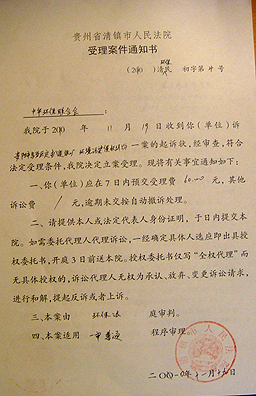 贵州省清镇市人民法院
受理案件通知书
(20 )清 环保 民 初字第 号
中华环保联合会:
我院于2010年11月19日收到你(单位)诉
一案的起诉状,经审查,符合
法定受理条件,我院决定立案受理。现将有关事宜通知如下:
一、你(单位)应在7日内预交受理费 元,其他
诉讼费 / 元,逾期未交按自动撤诉处理。
二、请提供本人或法定代表人身份证明,于日内提交本
院。如需委托代理人代理诉讼,一经确定具体人选应即出具授
权委托书,开庭3日前送本院。授权委托书仅写“全权代理”而
无具体授权的,诉讼代理人无权为承认、放弃、变更诉讼请求,
进行和解,提起反诉或者上诉。
三、本案由 环保法 庭审判。
四、本案适用 一审普通 程序审理。
二〇一〇年十一月十 日